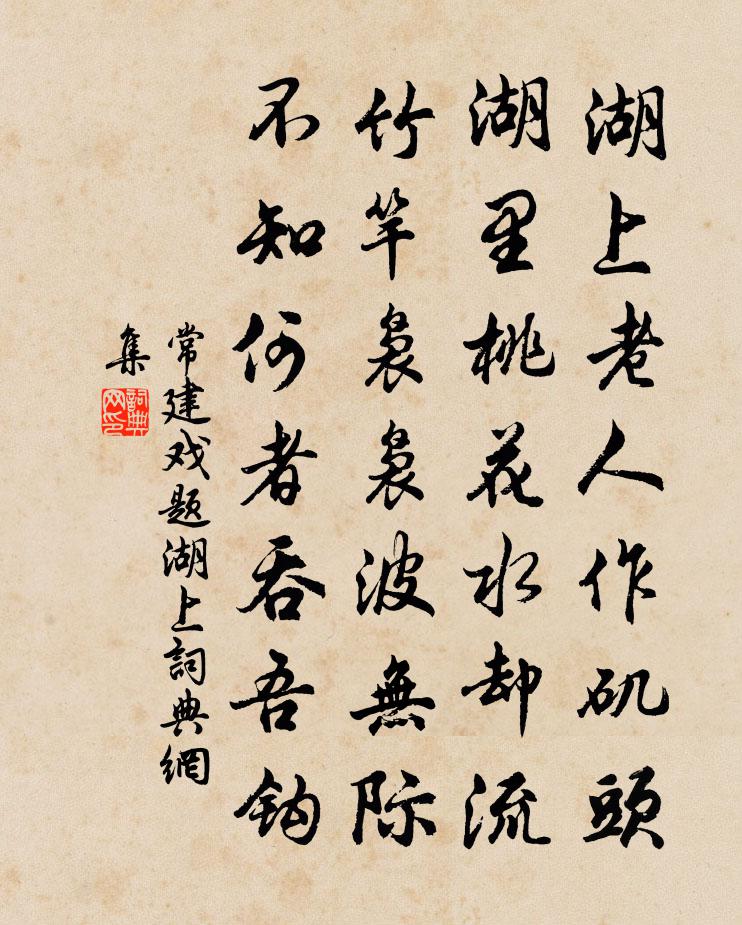 湖上老人作矶頭
湖里桃花水却流
竹竿袅袅波無际
不知何者吞吾钩
常建戏题湖上詞典網
集
詞典
网印